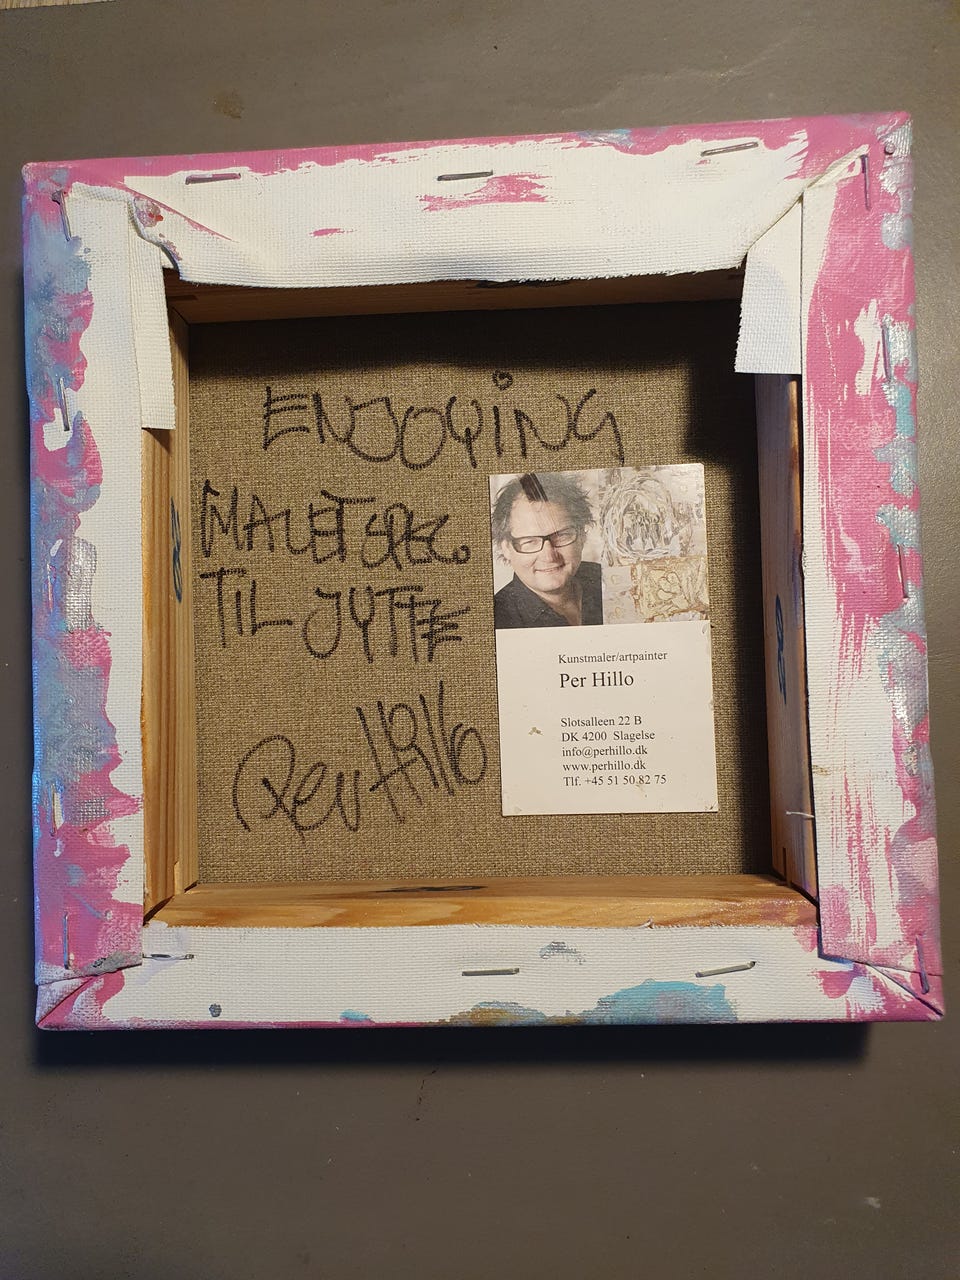 ENJOYING
MALET SPEC.
TIL JYTTE
Per Hillo
Kunstmaler/artpainter
Per Hillo
Slotsalleen 22 B
DK 4200 Slagelse
info@perhillo.dk
www.perhillo.dk
Tlf. +45 51 50 82 75